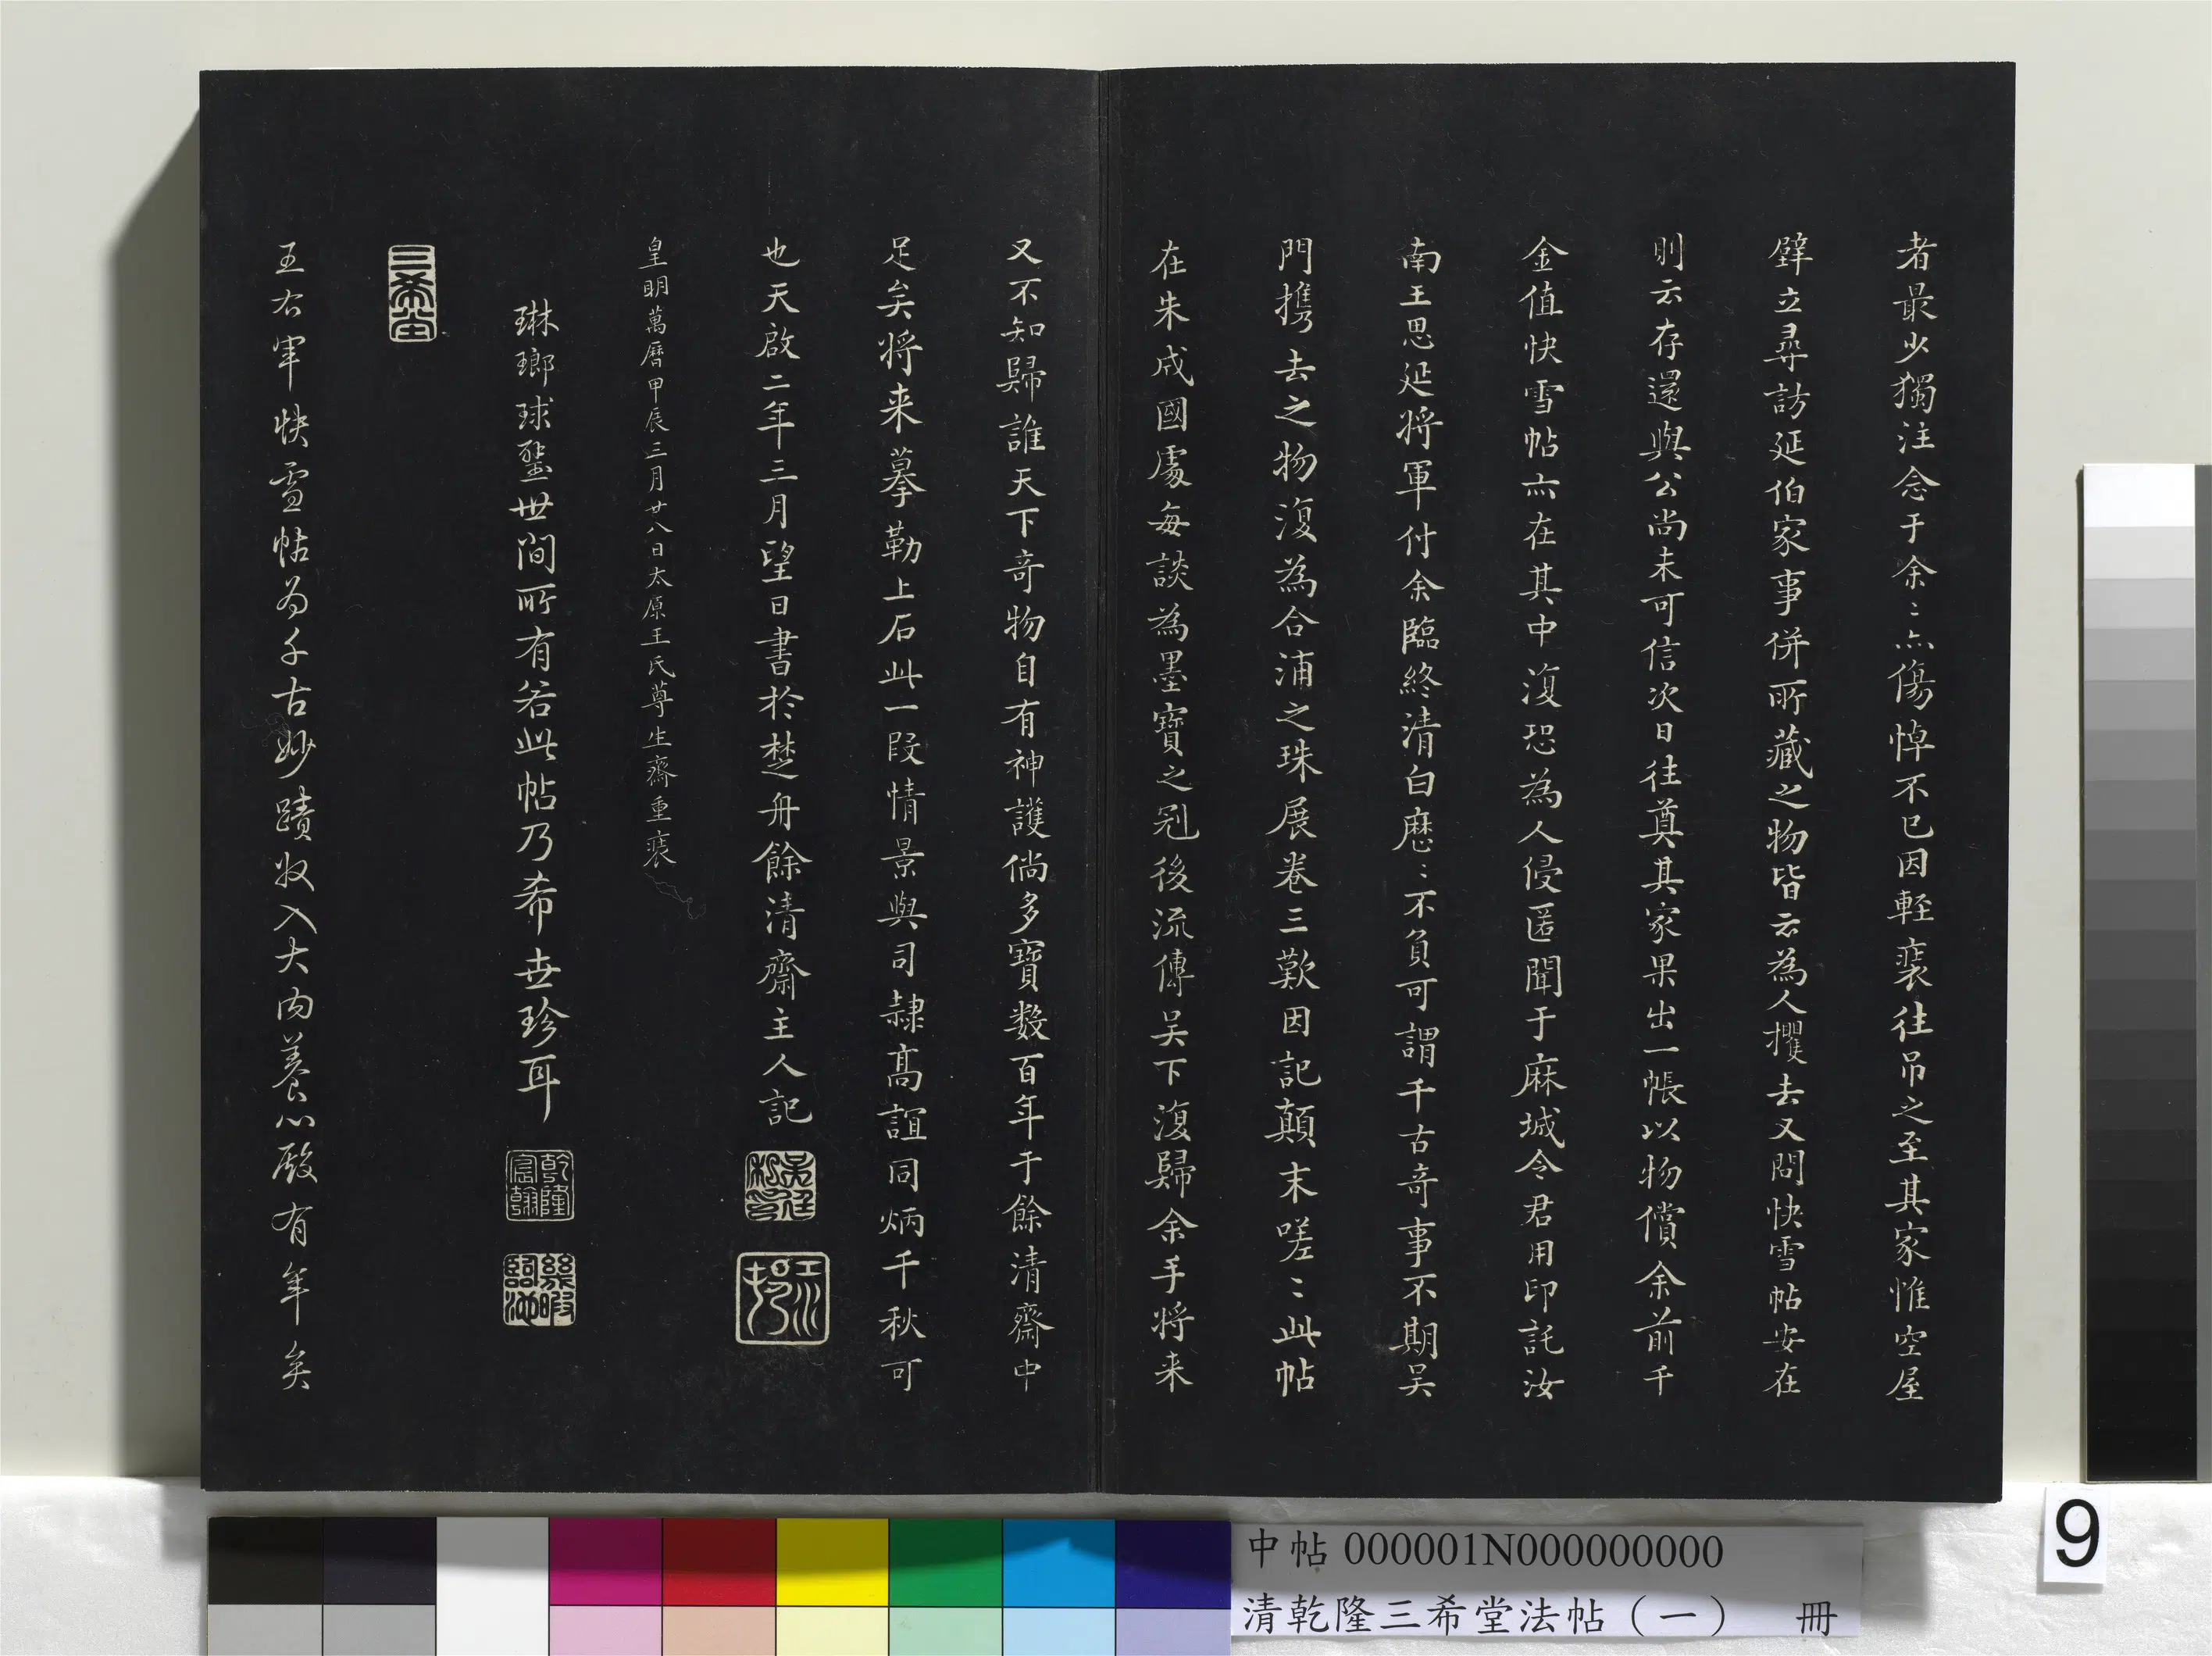 者最少獨注念于余〻亦傷悼不已因輕裘往吊之至其家惟空屋
壁立尋訪延伯家事併所藏之物皆云為人攫去又問快雪帖安在
則云存還與公尚未可信次日往奠其家果出一帳以物償余前千
金值快雪帖亦在其中復恐為人侵匿聞于麻城令君用印託汝
南王思延將軍付余臨終清白歷〻不負可謂千古奇事不期吴
門攜去之物復為合浦之珠展卷三歎因記顛末嗟〻此帖
在朱成國處每談為墨寶之冠後流傳吴下復歸余手將来
又不知歸誰天下奇物自有神護倘多寶数百年于餘清齋中
足矣將来摹勒上石此一段情景與司隷髙誼同炳千秋可
也天啟二年三月望日書於楚舟餘清齋主人記
吳廷私印
江邨
皇明萬曆甲辰三月廿八日太原王氏尊生齋重裝
琳瑯球璧世間所有若此帖乃希世珍耳
乾隆宸翰
幾暇臨池
三希堂
王右軍快雪帖為千古妙蹟收入大內養心殿有年矣
中帖 000001N000000000
清乾隆三希堂法帖（一） 冊
9